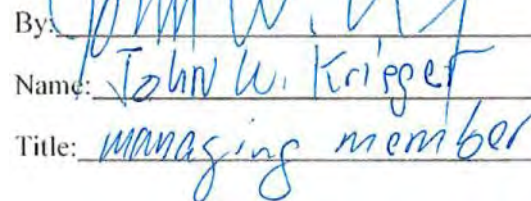 By: John W.
Name: John W. Krieger
Title: managing member